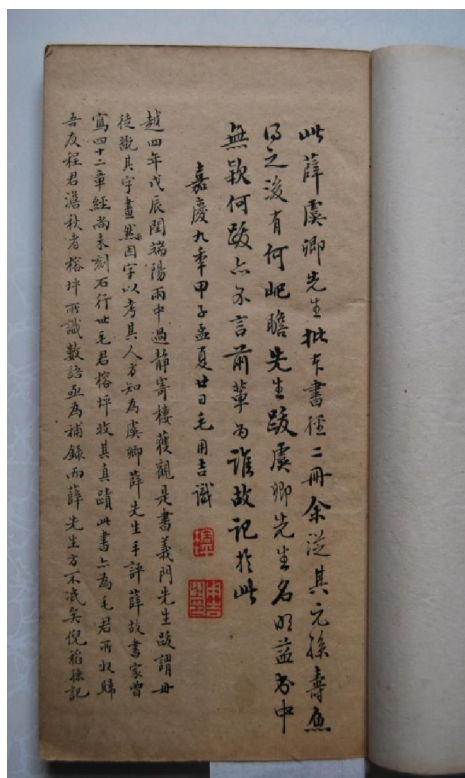 此薛虞卿先生批本書經二冊余從其元孫壽魚
得之後有何屺瞻先生跋虞卿先生名明益書中
無款何跋亦不言前輩為誰故記於此
嘉慶九秊甲子孟夏廿日毛用吉識
越四年戊辰閏端陽雨中過靜寄樓獲觀是書義門先生跋謂毋
徒歎其字畫然因字以考其人方知為虞卿薛先生手評薛故書家曾
寫四十二章經尚未刻石行世毛君榕坪故其真蹟此書亦為毛君所收歸
吾友程君澹秋者榕坪所識數語亟為補錄而薛先生方不泯矣倪稻孫記